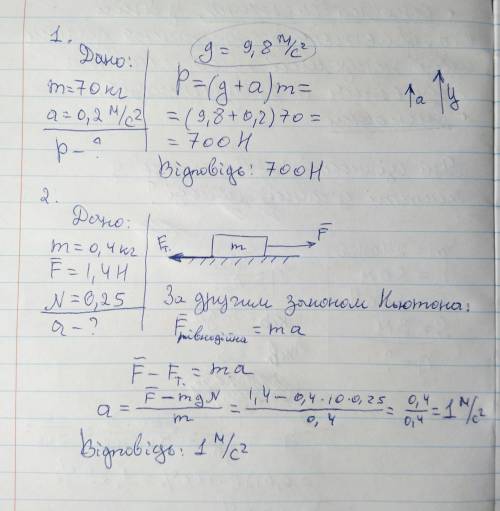 1.
Дано:
m=70кг
a=0,2 м/с²
p-?
g = 9,8 м/с²
P=(g+a)m=
=(9,8+0,2)70=
=700Н
Відповідь: 700Н
a y
2.
Дано:
m=0,4кг
F̅=1,4Н
N=0,25
a-?
Fт. m F̅
За другим законом Ньютона:
F̅рівнодійна = ma
F̅ - Fт. = ma
a = (F̅-mgN)/m = (1,4-0,4·10·0,25)/0,4 = 0,4/0,4 = 1 м/с²
Відповідь: 1 м/с²